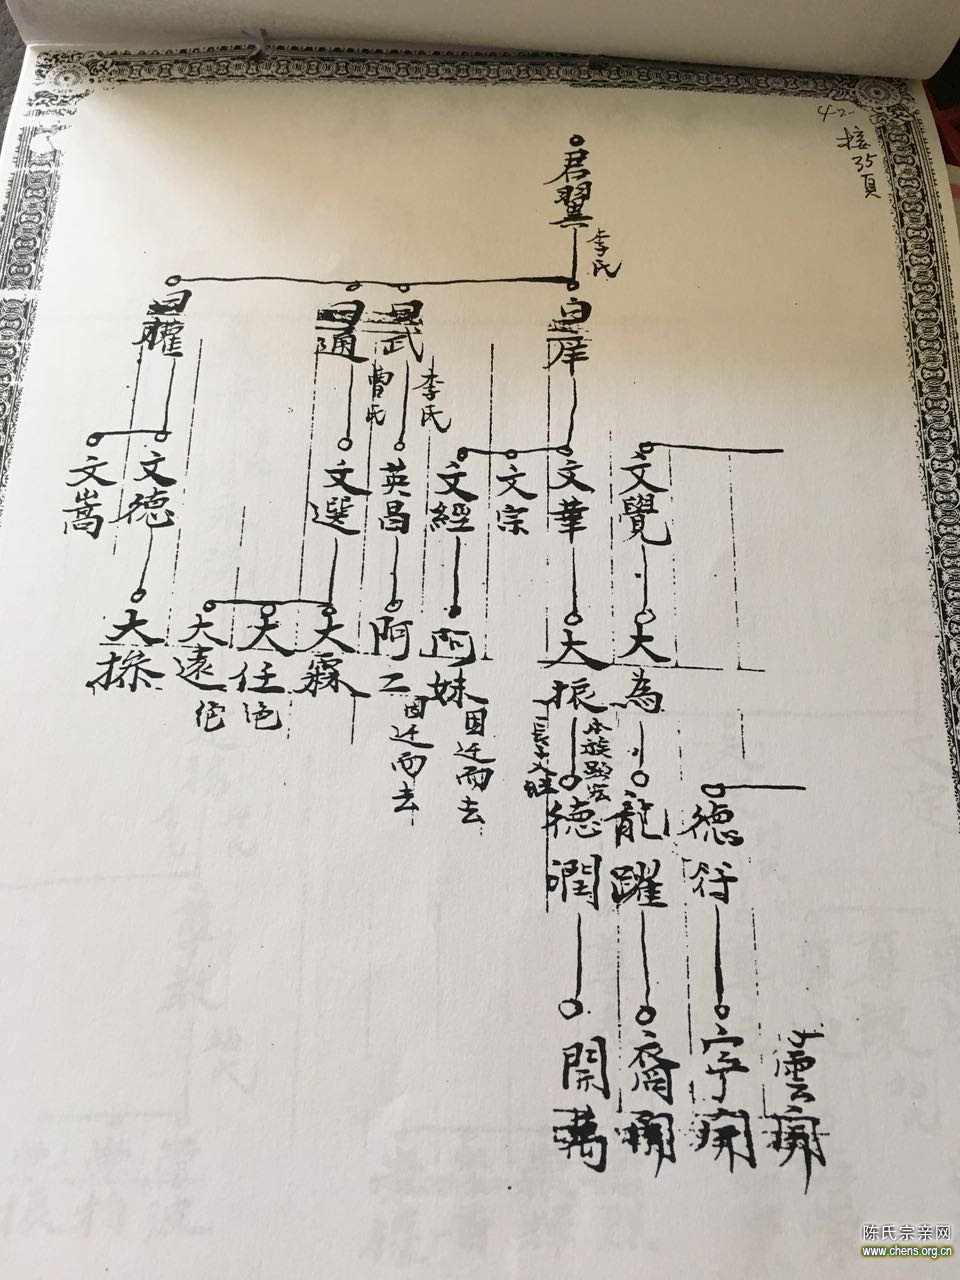 42
接35頁
君翼
李氏
曰庠
曰武
李氏
曰通
曹氏
曰權
文覺
文華
文宗
文經
英昌
文選
文德
文嵩
大為
大振
阿妹
因迁而去
阿二
因迁而去
大霖
大任
绝
大遠
绝
大
德行
龍躍
德潤
雲
宇開
開萬
陈氏宗亲网
www.chens.org.cn